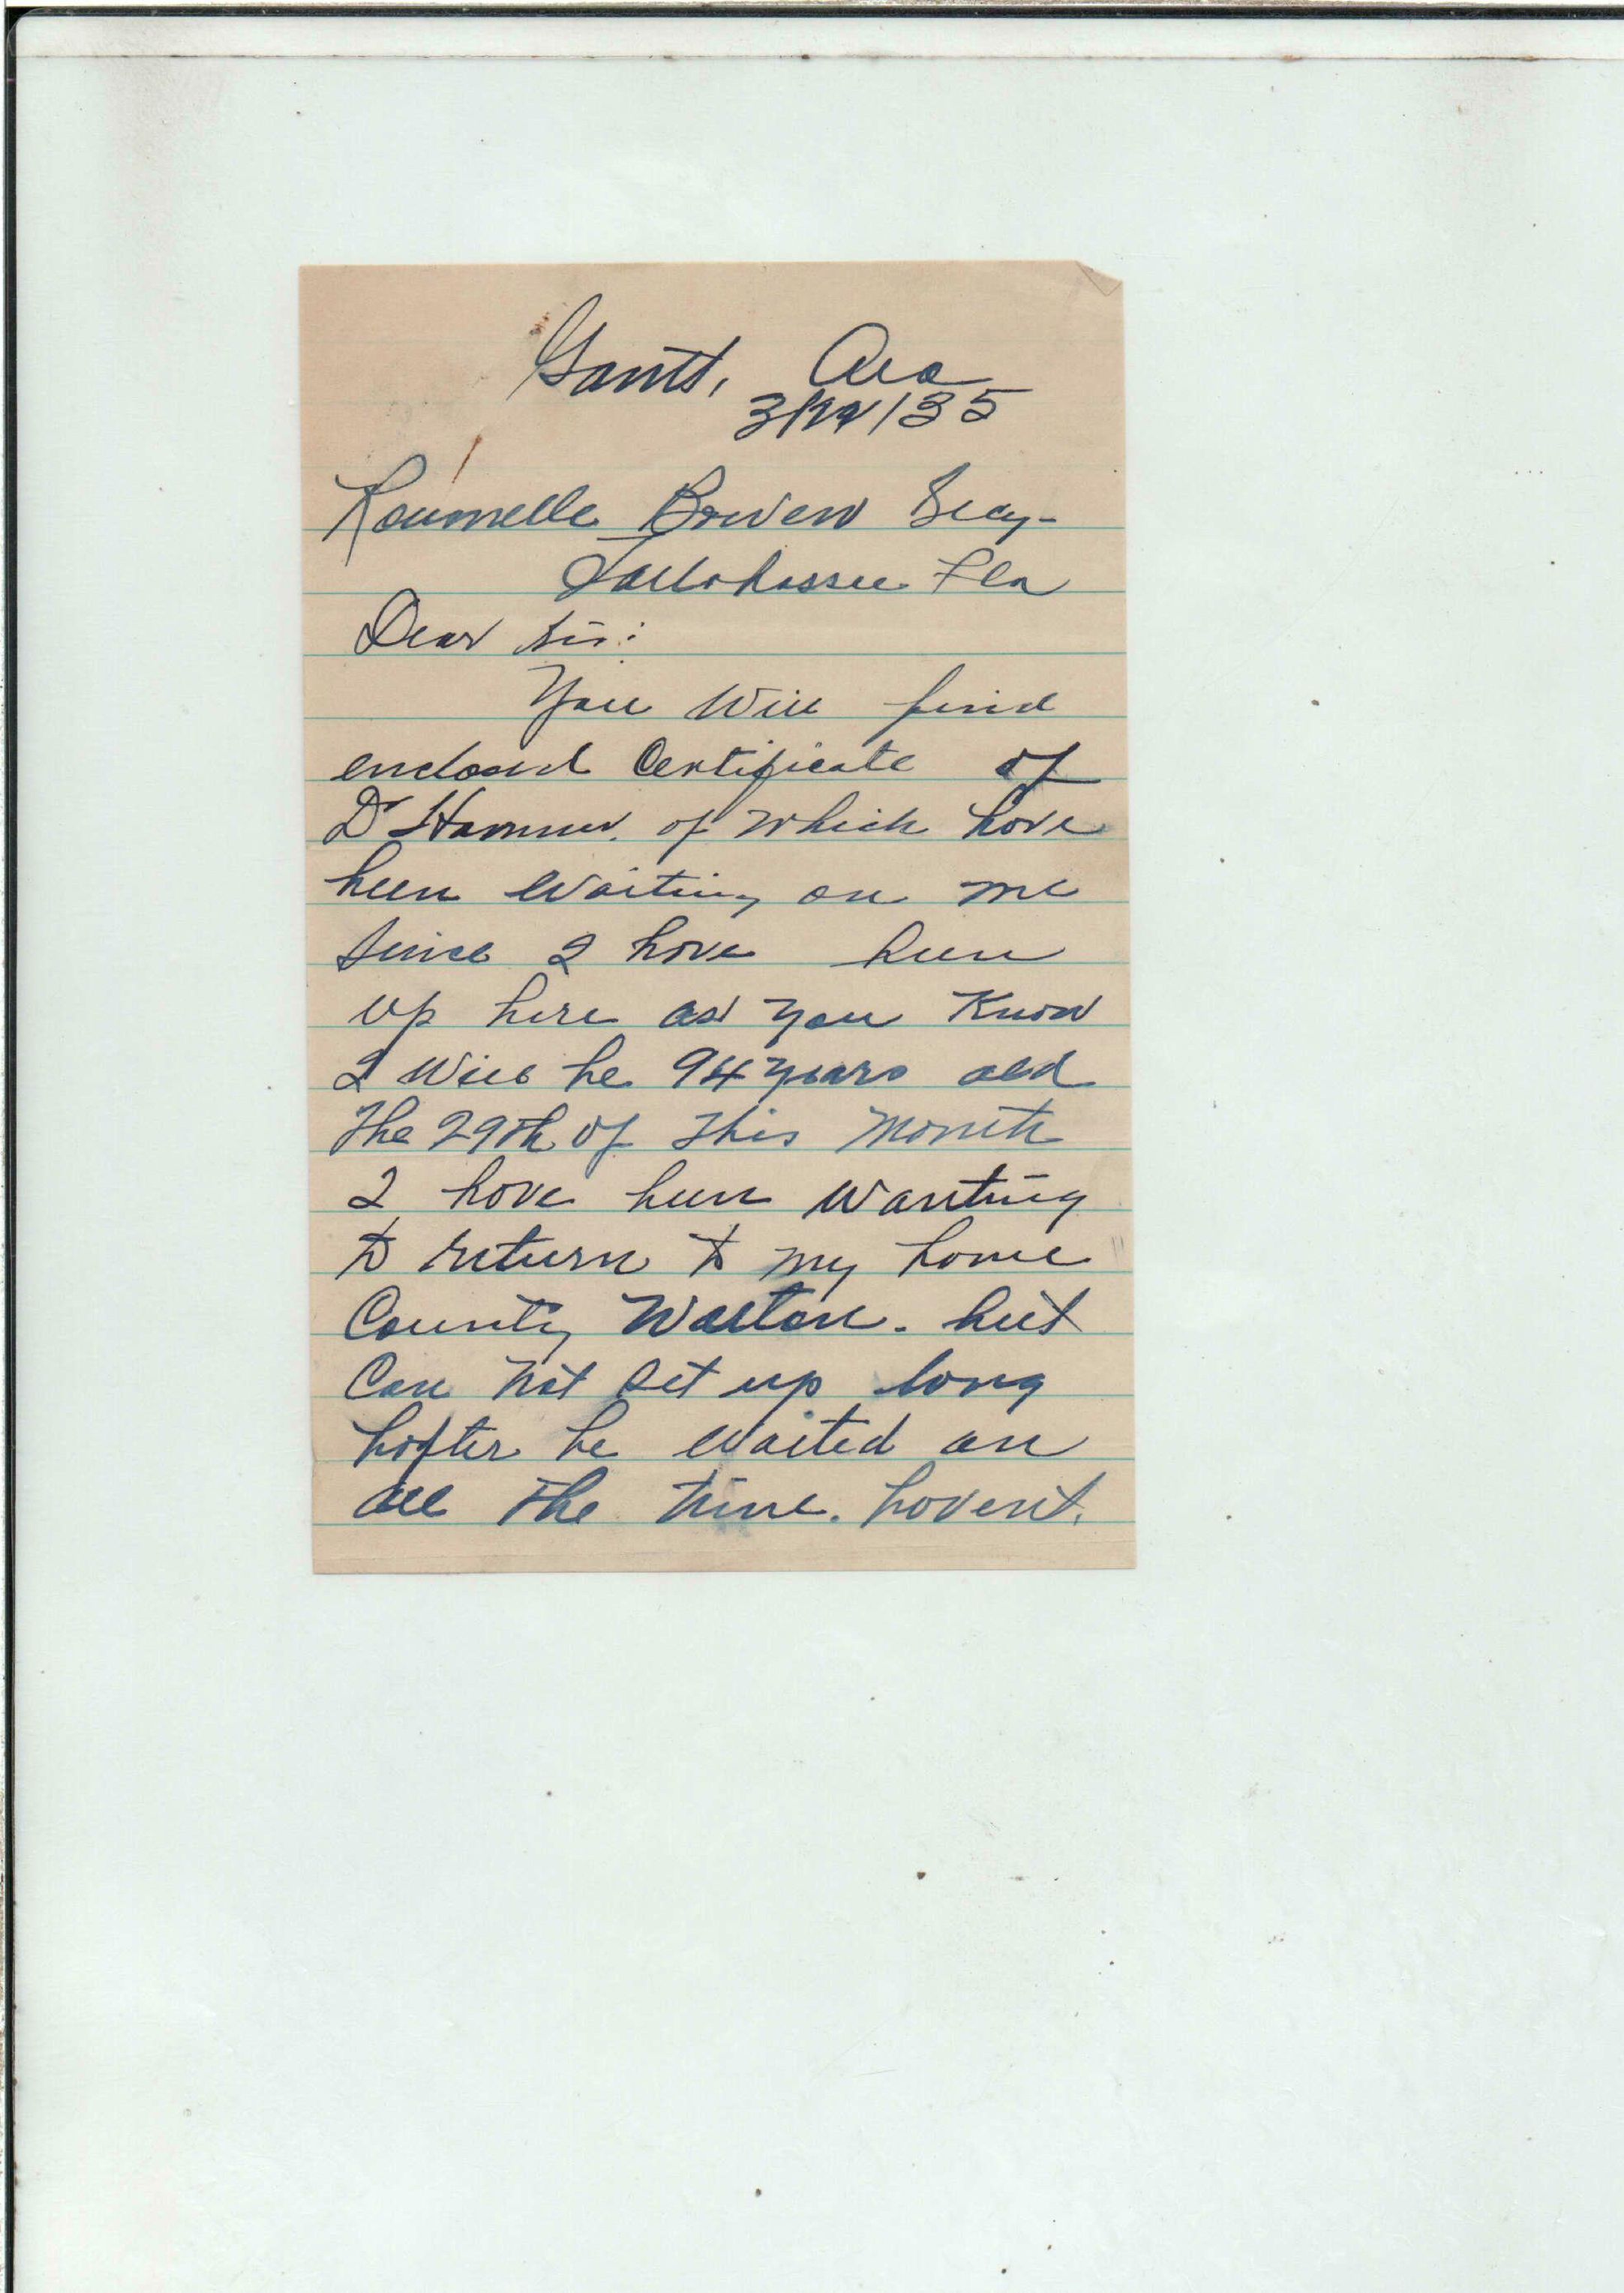 Gantt, Ala
3/22/35
Roumelle Bowen Secy-
Tallahassee Fla
Dear Sir:
You Will find
enclosed Certificate of
Dr of which have
been Waiting on me
Since I have been
up here as you Know
I Will be 94 years old
The 29th of This Month
I have been Wanting
to return to my home
County Walton. but
Can Not set up long
hafter be Waited on
all The time. havent.